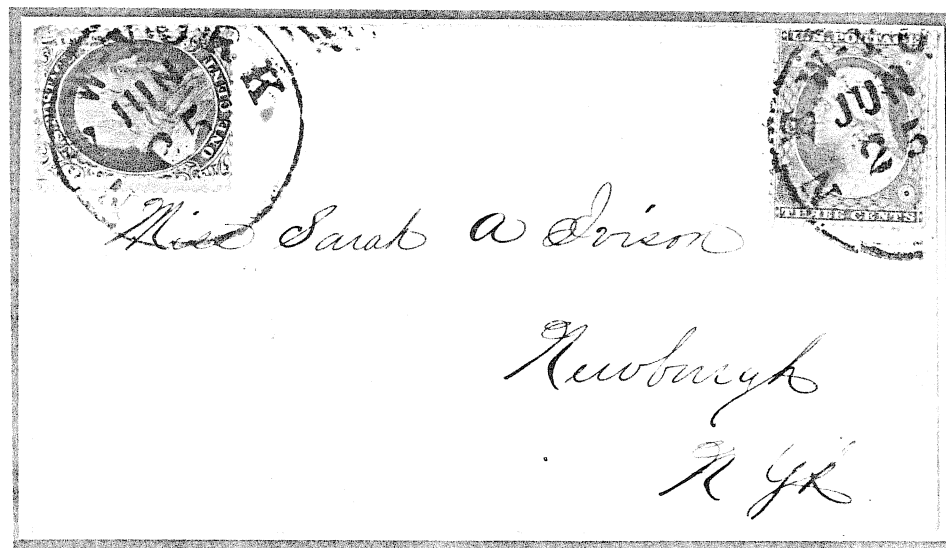 NEW-YORK
JUN
25
ONE
NEW-YO
JUN
25
THREE CENTS
Miss Sarah A Ivison
Newburgh
N Yk